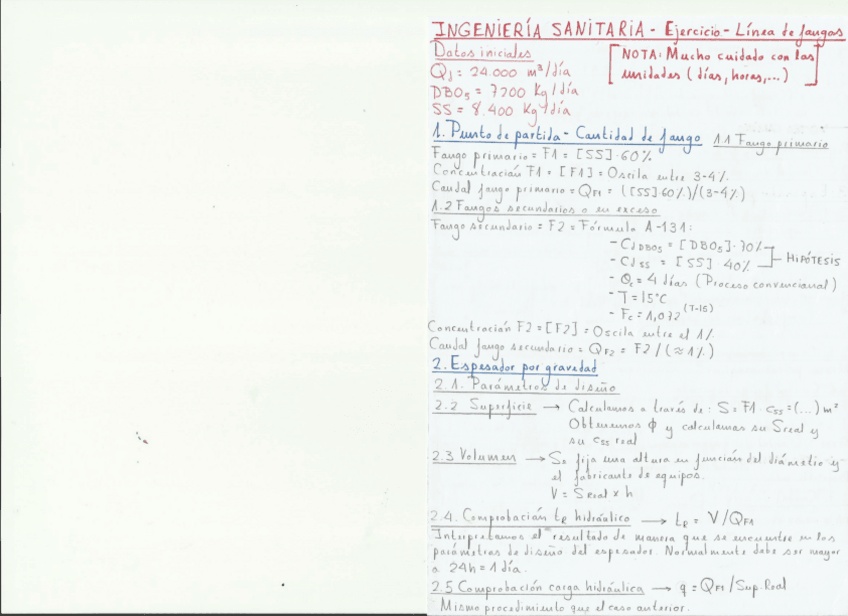 INGENIERÍA SANITARIA - Ejercicio - Línea de fangos
Datos iniciales
NOTA: Mucho cuidado con las
unidades (días, horas,...)
Qd = 24.000 m³/día
DBO5 = 7200 Kg/día
SS = 8.400 Kg/día
1. Punto de partida - Cantidad de fango 1.1 Fango primario
Fango primario = F1 = [SS]·60%
Concentración F1 = [F1] = Oscila entre 3-4%
Caudal fango primario = QF1 = ([SS]·60%)/(3-4%)
1.2 Fangos secundarios o en exceso
Fango secundario = F2 = Fórmula A-131:
- CdDBO5 = [DBO5]·70%
- CdSS = [SS] 40%
HIPÓTESIS
- θc = 4 días (Proceso convencional)
- T = 15°C
- Fc = 1,072 (T-15)
Concentración F2 = [F2] = Oscila entre el 1%
Caudal fango secundario = QF2 = F2 / (≈1%)
2. Espesador por gravedad
2.1. Parámetros de diseño
2.2 Superficie → Calculamos a través de: S = F1 · css = (...) m²
Obtenemos ϕ y calculamos su Sreal y
su css real
2.3 Volumen → Se fija una altura en función del diámetro y
el fabricante de equipos.
V = Sreal × h
2.4. Comprobación tR hidráulico → tR = V/QF1
Interpretamos el resultado de manera que se encuentre en los
parámetros de diseño del espesador. Normalmente debe ser mayor
a 24h = 1 día.
2.5 Comprobación carga hidráulica → q = QF1 / Sup.Real
Mismo procedimiento que el caso anterior.